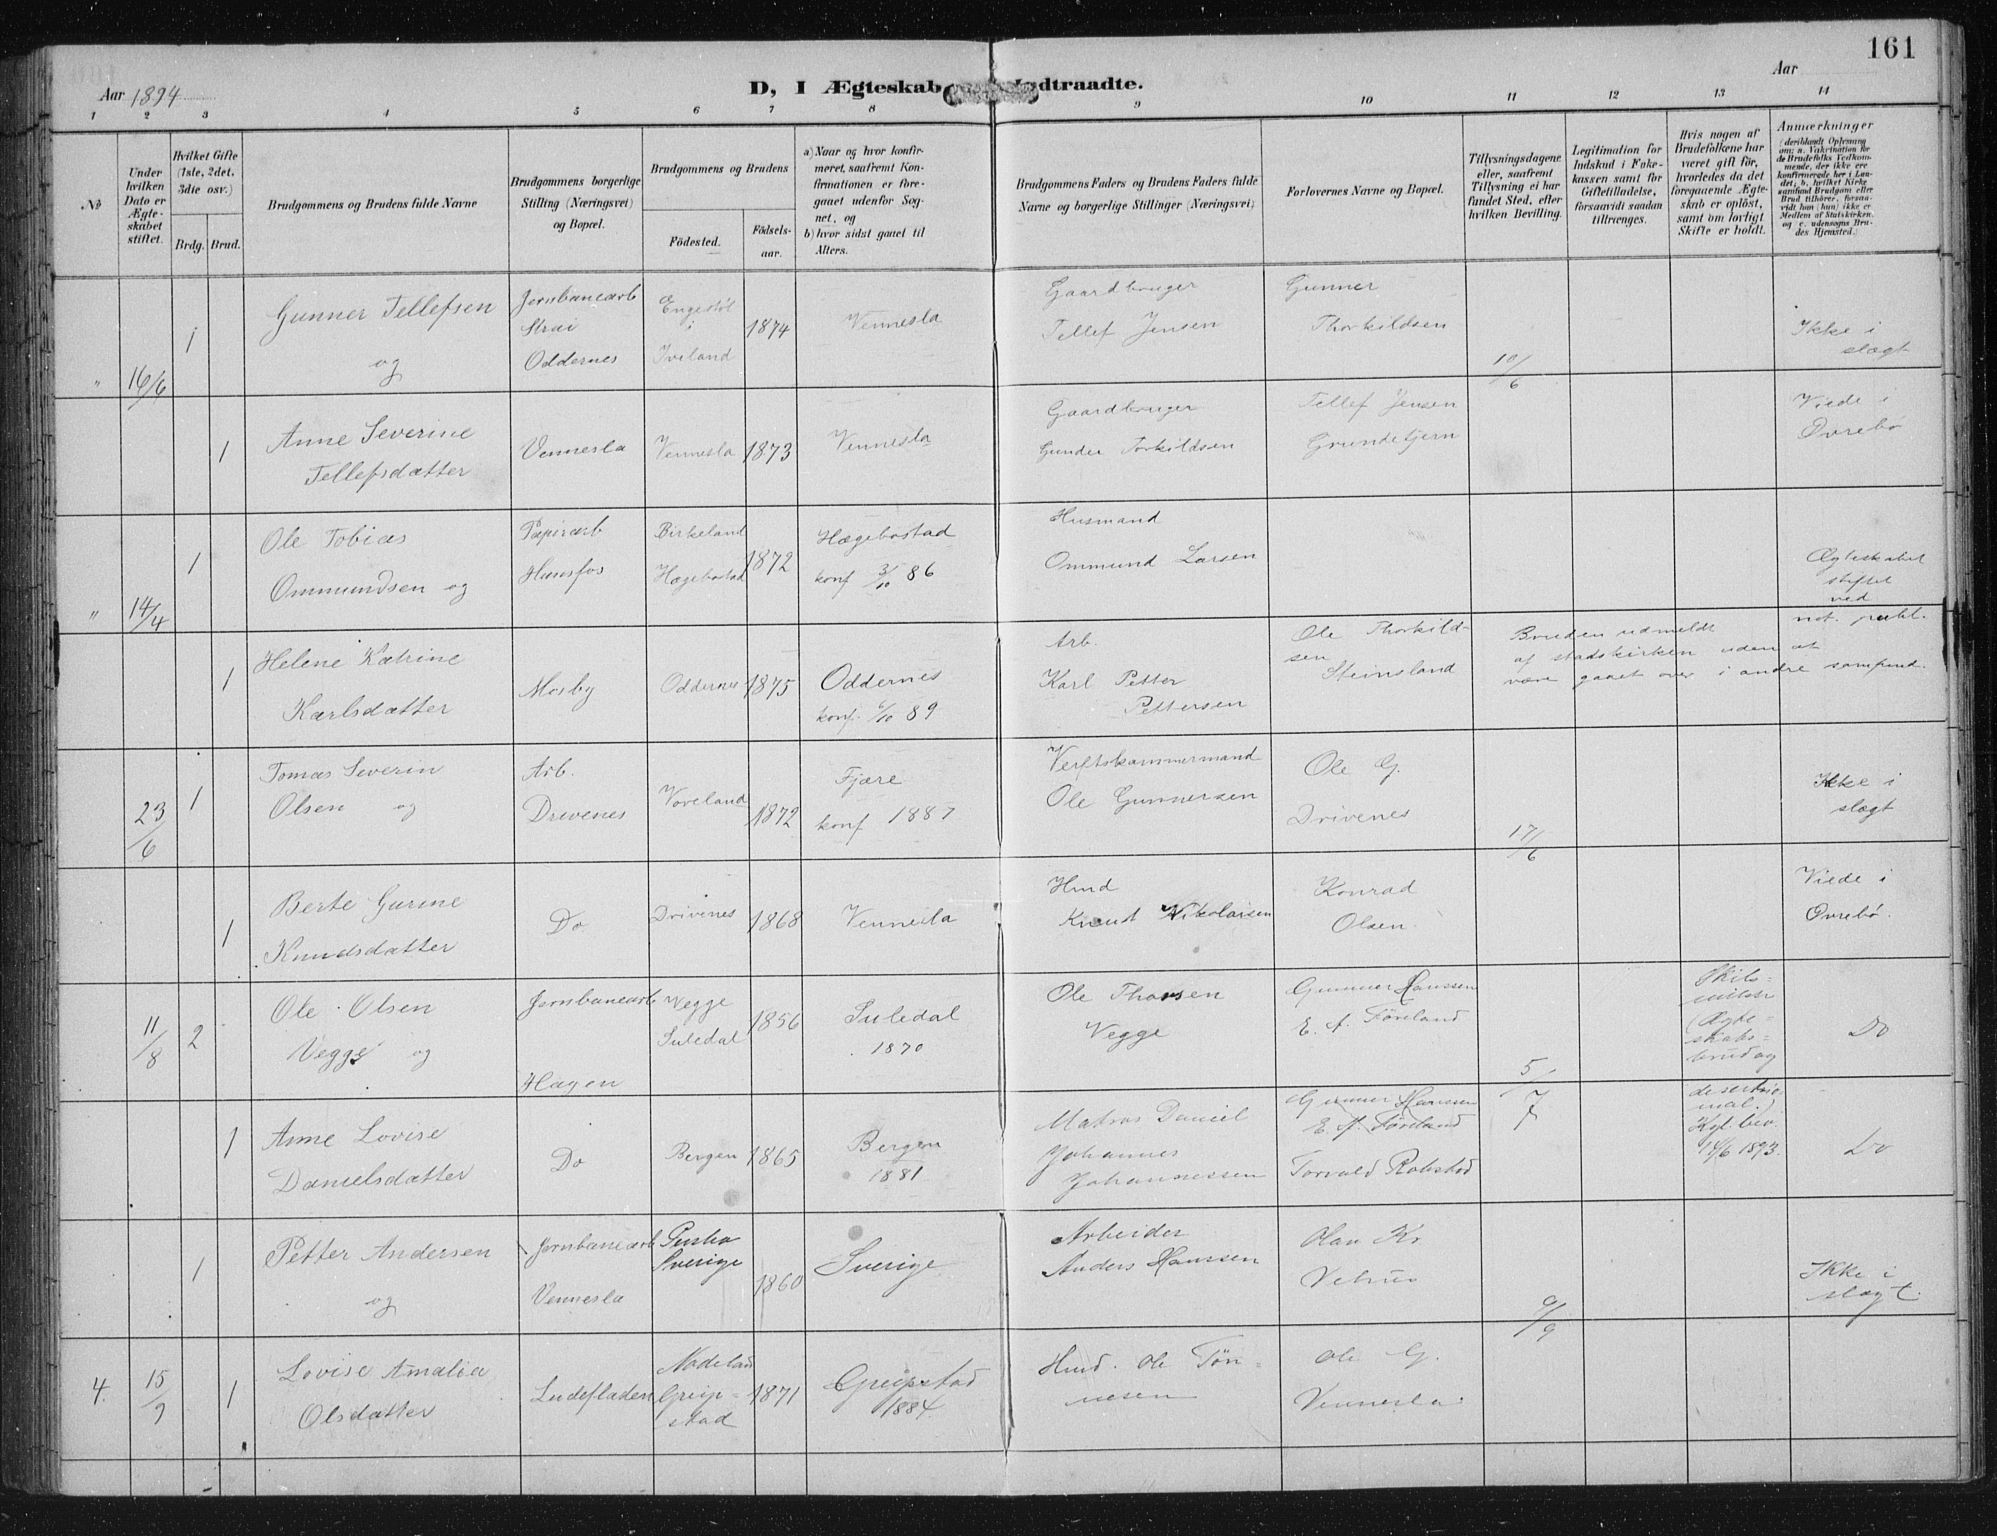 161
Aar 1894
D, I Ægteskab Indtraadte.
Aar
1 2 3 4 5 6 7 8 9 10 11 12 13 14
No
Under hvilken Dato er Ægteskabet stiftet.
Hvilket Gifte (1ste, 2det, 3die osv.)
Brdg. Brud.
Brudgommens og Brudens fulde Navne
Brudgommens borgerlige Stilling (Næringsvei) og Bopæl.
Brudgommens og Brudens
Födested.
Födsels-aar.
a) Naar og hvor konfirmeret, saafremt Konfirmationen er foregaaet udenfor Sognet, og
b) hvor sidst gaaet til Alters.
Brudgommens Faders og Brudens Faders fulde Navne og borgerlige Stillinger (Næringsvei)
Forlovernes Navne og Bopæl.
Tillysningsdagene eller, saafremt Tillysning ei har fundet Sted, efter hvilken Bevilling.
Legitimation for Indskud i Enkekassen samt for Giftetilladelse, forsaavidt saadan tiltrænges.
Hvis nogen af Brudefolkene har været gift för, hvorledes da det foregaaende Ægteskab er oplöst, samt om lovligt Skifte er holdt.
Anmerkninger
(deriblandt Oplysning om: a. Vakcination for de Brudefolks Vedkommende, der ikke ere konfirmerede her i Landet; b. hvilket Kirkesamfund Brudgom eller Brud tilhörer, forsaavidt han (hun) ikke er Medlem af Statskirken, og c. udensogns Brudes Hjemsted.)
" 16/6 1 Gunner Tellefsen og
Jernbanearb Strai Oddernes
Engestöl i Iveland 1874 Vennesla
Gaardbruger Tellef Jensen
Gunner Thorkildsen
10/6
Ikke i slægt
1 Anne Severine Tellefsdatter
Vennesla Vennesla 1873 Vennesla
Gaardbruger Gunder Torkildsen
Tellef Jensen Grundetjern
Viede i Øvrebø
" 14/4 1 Ole Tobias Ommundsen og
Papirarb Hunsfos
Birkeland Hægebostad 1872
Hægebostad konf 3/10 86
Husmand Ommund Larsen
Ægteskabet stiftet ved not. publ.
1 Helene Katrine Karlsdatter
Mosby Oddernes 1875
Oddernes konf. 6/10 89
Arb. Karl Petter Pettersen
Ole Thorkildsen Steinsland
Bruden udmeldt af stadskirken uden at være gaaet over i andre samfund.
23/6 1 Tomas Severin Olsen og
Arb. Drivenes
Voreland 1872
Fjære konf 1887
Verftskommermand Ole Gunnersen
Ole G. Drivenes
17/6
Ikke i slægt
1 Berte Gurine Knudsdatter
Do Drivenes 1868 Vennesla
Hmd Knud Nikolaisen
Konrad Olsen
Viede i Øvrebø.
11/8 2 Ole Olsen Vegge og
Jernbanearb Hagen
Vegge Suledal 1856
Suledal 1870
Ole Thorsen Vegge
Gunner Hanssen
E. A. Føreland
5/7
Skilsmisse (Ægteskabsbrud og
Do
1 Anne Lovise Danielsdatter
Do Bergen 1865
Bergen 1881
Matros Daniel Johannes Johannessen
Gunner Hanssen
E. A. Føreland
Torvald Robstad
Kgl. bev. 14/6 1893.
Do
1 Petter Andersen og
Jernbanearb Vennesla
Sverige 1860 Sverige
Arbeider Anders Hanssen
Olav Kr
9/9
Ikke i slægt.
4. 15/9 1 Lovise Amalia Olsdatter
Ludefladen
Nodeland Greipstad 1871
Greipstad 1884
Hmd. Ole Tönnesen
Ole G. Vennesla